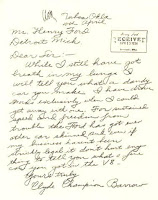 Tulsa Okla
10th April
Mr. Henry Ford
Detroit Mich.
Dear Sir:—
While I still have got
breath in my lungs I
will tell you what a dandy
car you make. I have drove
Fords exclusively when I could
get away with one. For sustained
speed and freedom from
trouble the Ford has got ever
other car skinned and even if
my business hasen't been
strickly legal it don't hurt any
thing to tell you what a fine
car you got in the V8 -
Yours truly
Clyde Champion Barrow